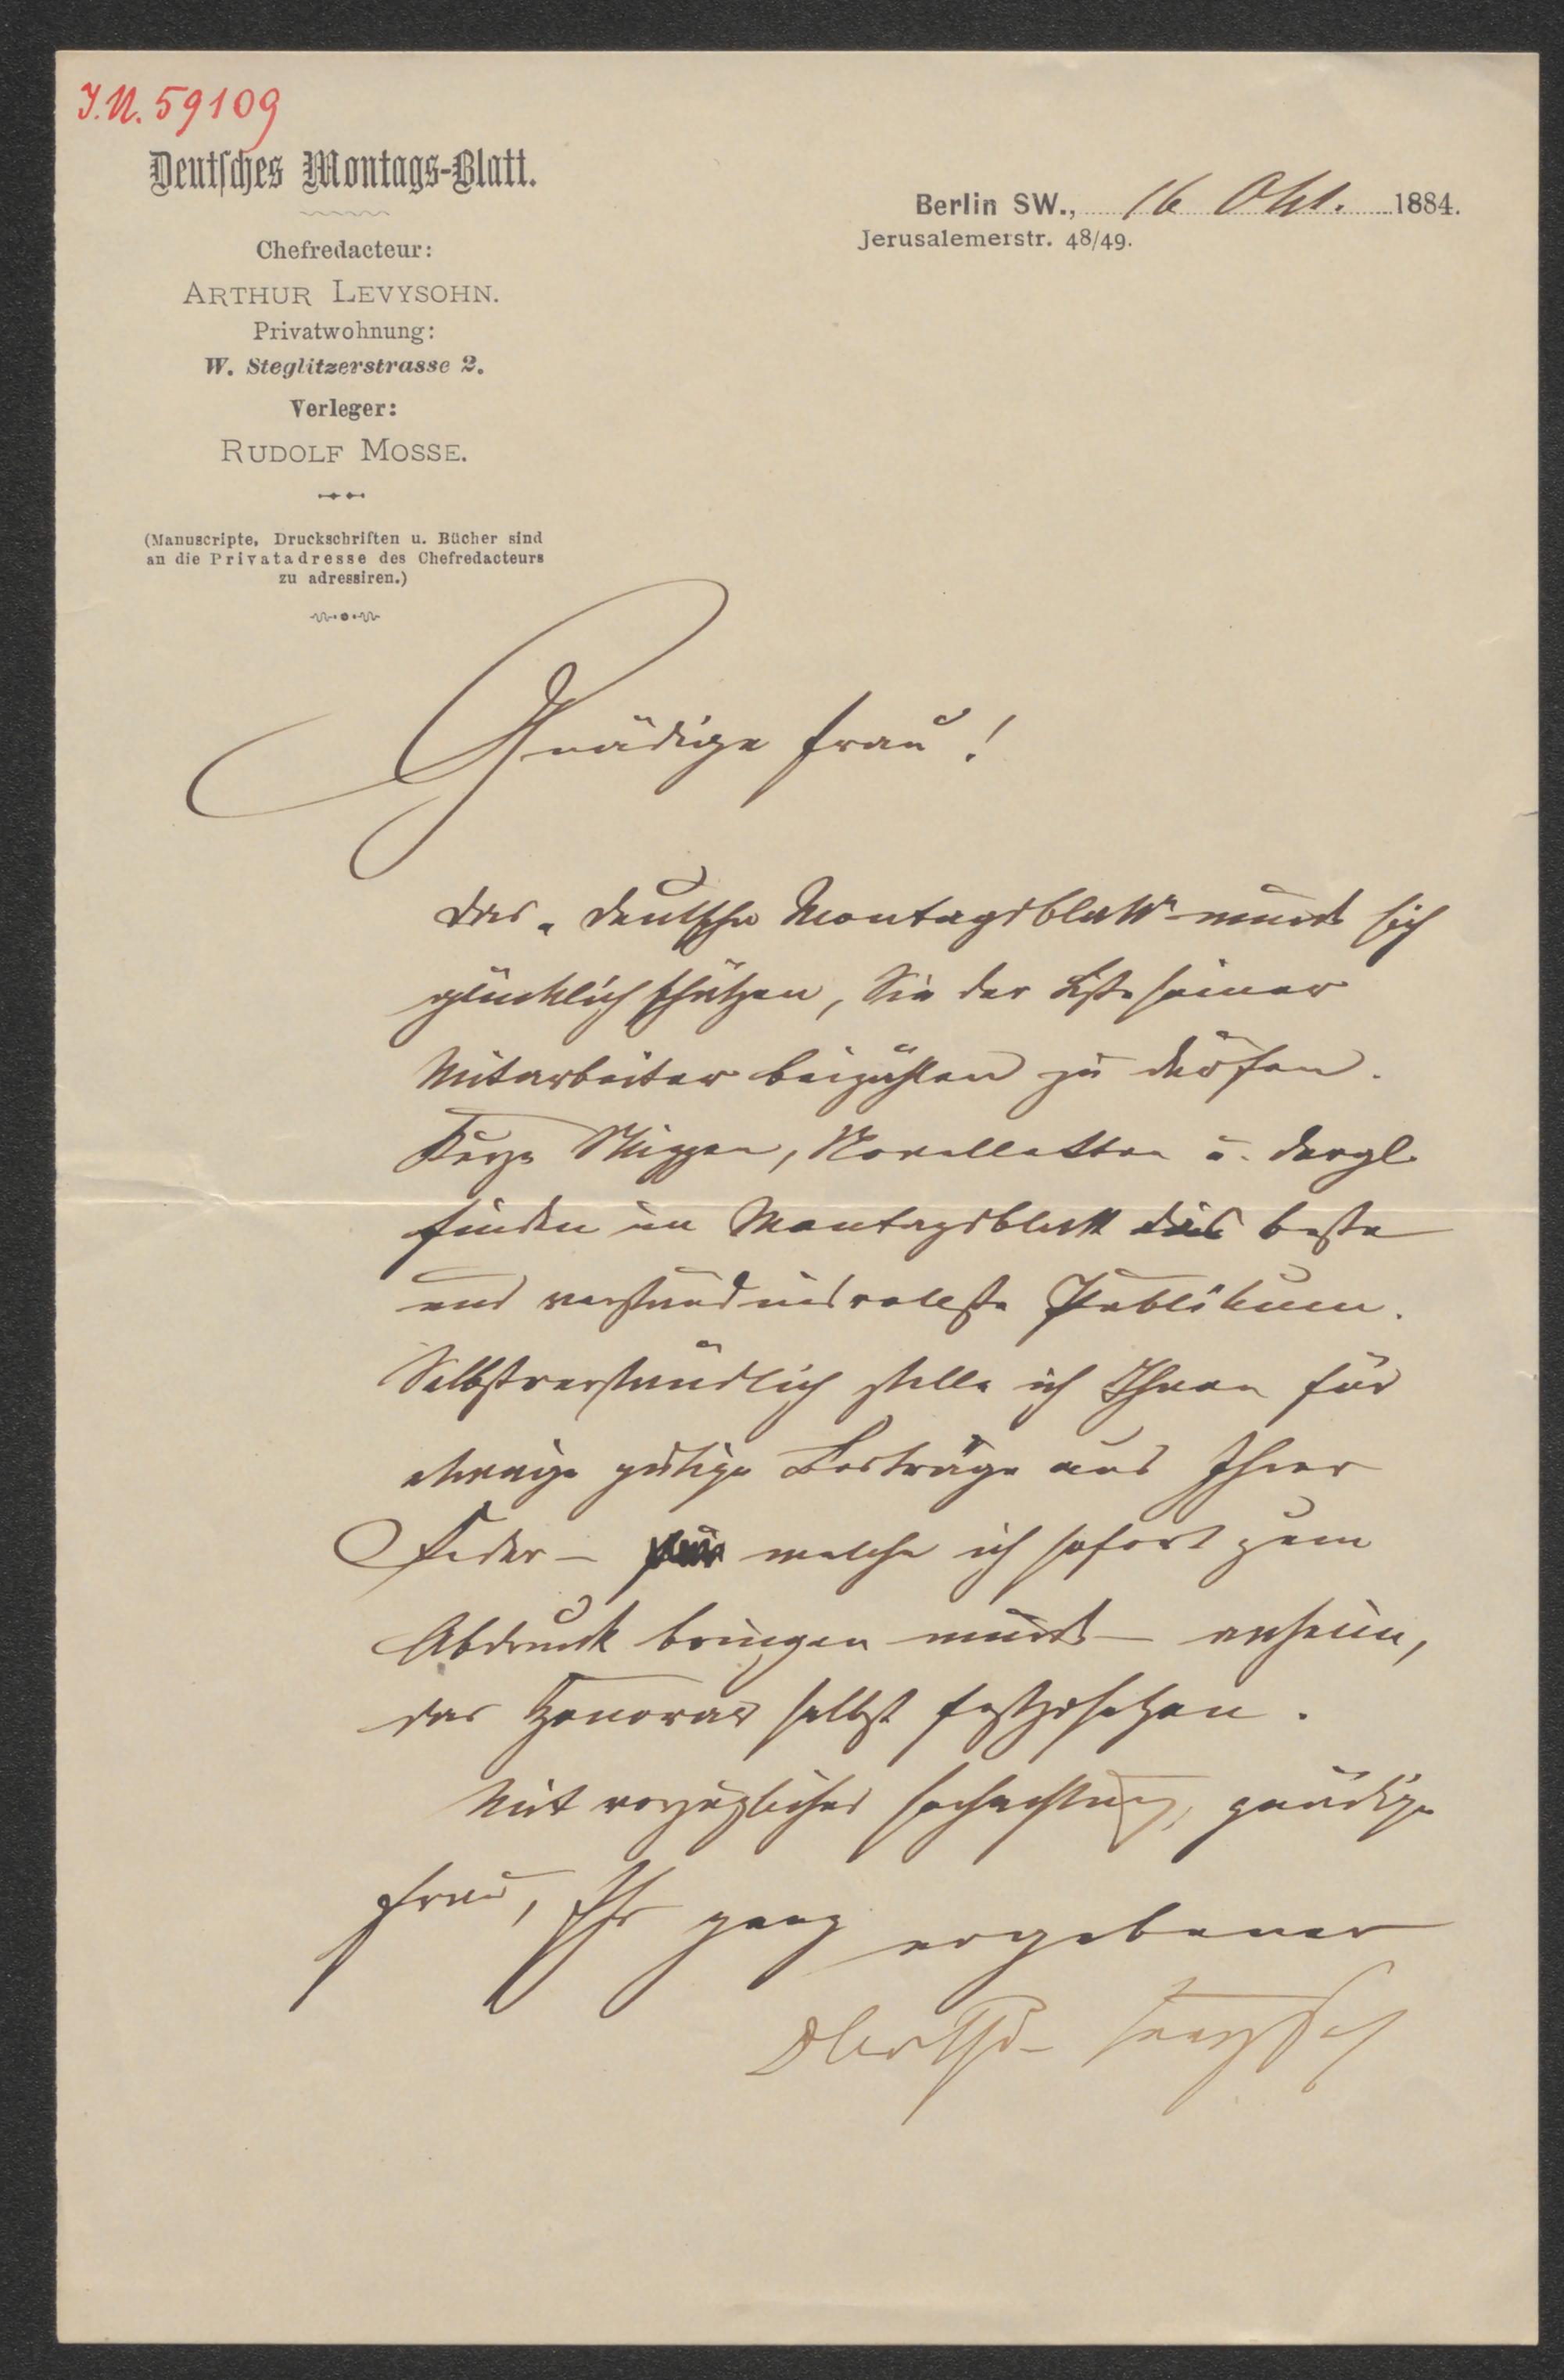 J.N. 59109
Deutsches Montags-Blatt.
Berlin SW., 16 Okt. 1884.
Jerusalemerstr. 48/49.
Chefredacteur:
ARTHUR LEVYSOHN.
Privatwohnung:
W. Steglitzerstrasse 2.
Verleger:
RUDOLF MOSSE.
(Manuscripte, Druckschriften u. Bücher sind
an die Privatadresse des Chefredacteurs
zu adressiren.)
Gnädige Frau!
Das „Deutsche Montagsblatt" würde sich
glücklich schätzen, Sie der Liste seiner
Mitarbeiter beizählen zu dürfen.
Kurze Skizzen, Novelletten u. dergl.
finden im Montagsblatt das beste
und verständnisvollste Publikum.
Selbstverständlich stelle ich Ihnen für
etwaige gütige Beiträge aus Ihrer
Feder – welche ich sofort zum
Abdruck bringen würde – anheim,
das Honorar selbst festzusetzen.
Mit vorzüglicher Hochachtung, gnädige
Frau, Ihr ganz ergebener
Arthur Levysohn